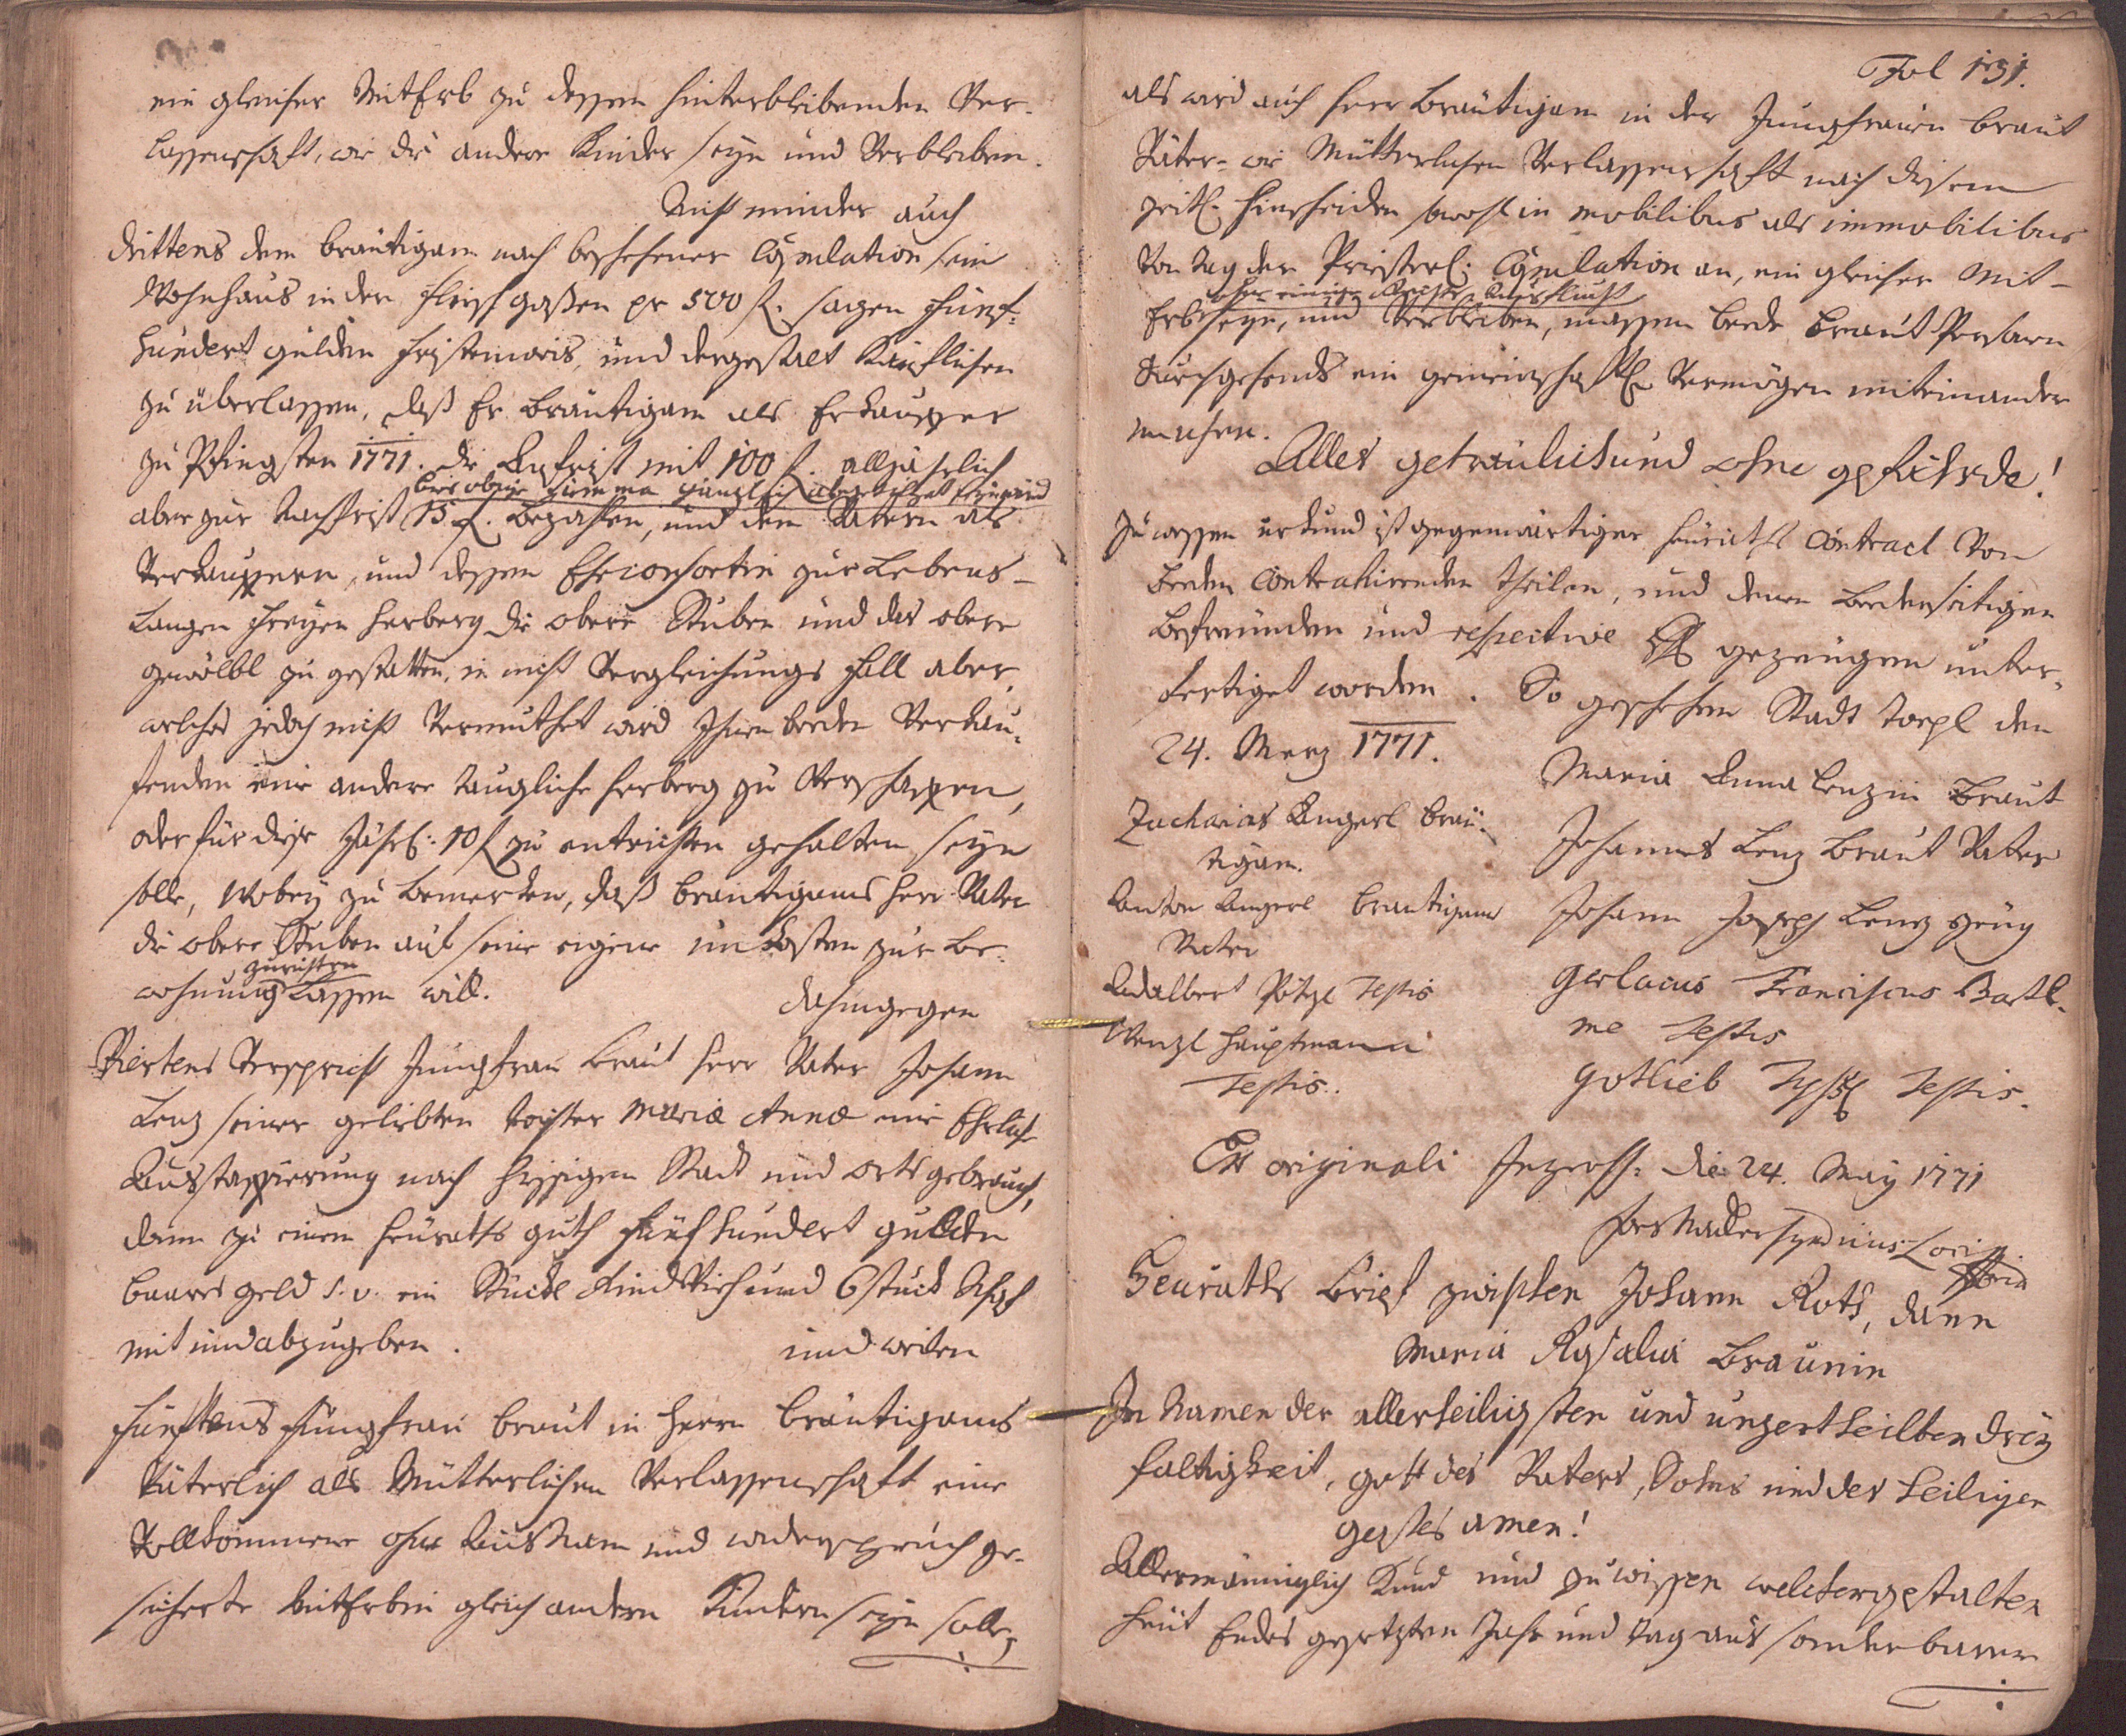 ein gleicher MitErb zu dessen hinterbleibenden Ver-
lassenschaft, wie die andere Kinder seyn und Verbleiben.
Nicht minder auch
drittens dem bräutigam nach beschehener Copulation sein
Wohnhaus in der gaßen pr 500 f. sagen Fünf-
hundert gulden und dergestalt Käuflichen
zu überlassen, daß Er bräutigam als Erkauffer
zu Pfingsten 1771. die Anfrist mit 100 f. alljährlich
bis obige Summa gänzlich abgeführet seyn wird
aber zur Nachfrist 15 f. bezahlen, und dem Vatern als
Verkauffern, und dessen Eheconsortin zur Lebens-
langen freyen herberg die obere Stuben und das obere
gewölbl zu gestatten, in nicht Vergleichungs fall aber,
welches jedoch nicht Vermuthet wird Ihnen beeden Verkau-
fenden eine andere taugliche herberg zu Verschaffen,
oder für diese Jährl: 10 f zu entrichten gehalten seyn
solle, Wobey zu bemerken, daß brautigams herr Vater
die obere Stuben auf seine eigene unkosten zur Be-
zurichten
wohnung lassen will.
dahingegen
Viertens Verspricht Jungfrau braut herr Vater Johann
Lenz seiner geliebten tochter Mariæ Annæ eine Ehrliche
Ausstaffierung nach hiesigen Stadt und orts gebrauch,
dann zu einem heuraths guth fünfhundert gulden
baares geld s. v. ein Stückl Rindvieh und 6 stück Schaf
mit und abzugeben.
und weiten
fünftens Jungfrau braut in herrn bräutigams
Väterlich als Mütterlichen Verlassenschaft eine
Vollkommene ohne Ausnam und widerspruch ge-
sicherte MitErbin gleich andern Kindern seyn solle,
Fol 131.
als wird auch herr bräutigam in der Jungfrauen braut
Väter- wie Mütterlichen Verlassenschaft nach diesem
zeitl. hinscheiden sowohl in mobilibus als immobilibus
Von tag der Priesterl: Copulation an, ein gleicher Mit-
ohne einige Ausflucht
Erb seyn, und Verbleiben, massen beede braut Persohnen
durchgehends ein gemeinschaftl. Vermögen miteinander
machen.
Alles getreulich und ohne gefährde!
Zu wessen urkund ist gegenwärtiger heuraths Contract Von
beeden Contrahirenden theilen, und denen beederseitigen
befreunden und respective gezeugen unter-
fertiget worden. So geschehen Stadt toepl den
24. Merz 1771.
Zacharias Angerl bräu-
tigam.
Anton Angerl brautigams
Vater
Adalbert Pötzl Testis
Wenzl Hauptmann
Testis.
Maria Anna Lenzin braut
Johannes Lenz braut Vater
Johann Joseph Lenz zeug
Gerlacus Franciscus Bartl-
me Testis
Gottlieb Testis.
Ex originali Ingross: die 24. May 1771
Syndicus Loci
Heuraths brief zwischen Johann Roth, dann
Maria Rosalia Braunin
In Namen der allerheiligsten und unzertheilten drey
faltigkeit, gott des Vaters, Sohns und des heiligen
geistes amen!
Allermänniglich Kund und zuwissen welchergestalten
heut Endes gesetzten Jahr und tag aus sonderbaren